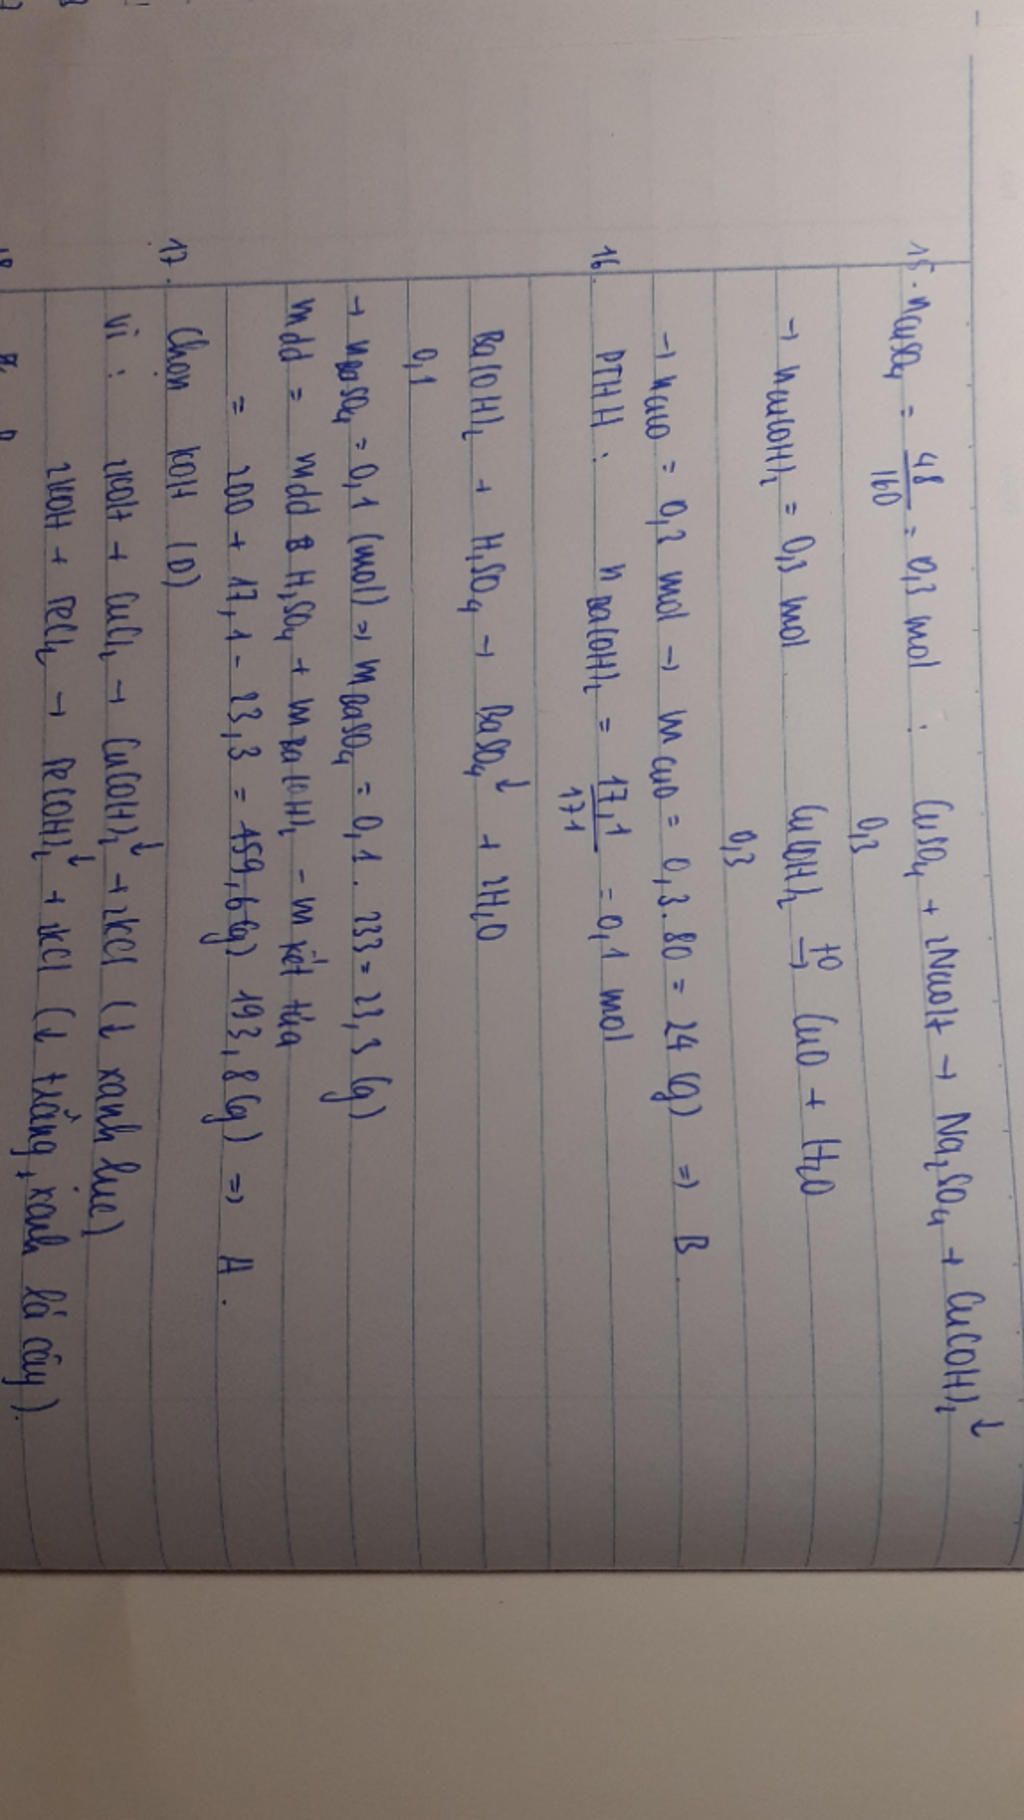 15. nCuSO₄ = 48/160 = 0,3 mol. CuSO₄ + 2NaOH → Na₂SO₄ + Cu(OH)₂↓
0,3
→ nCu(OH)₂ = 0,3 mol Cu(OH)₂ →(t⁰) CuO + H₂O
0,3
→ nCuO = 0,3 mol → mCuO = 0,3.80 = 24 (g) ⇒ B.
16. PTHH: nBa(OH)₂ = 17,1/171 = 0,1 mol
Ba(OH)₂ + H₂SO₄ → BaSO₄↓ + 2H₂O
0,1
→ nBaSO₄ = 0,1 (mol) ⇒ mBaSO₄ = 0,1.233 = 23,3 (g)
mdd = mdd H₂SO₄ + mBa(OH)₂ - m kết tủa
= 200 + 17,1 - 23,3 = 193,8 (g) ⇒ A.
17. Chọn KOH (D)
Vì: 2KOH + CuCl₂ → Cu(OH)₂↓ + 2KCl (↓ xanh lục)
2KOH + FeCl₂ → Fe(OH)₂↓ + 2KCl (↓ trắng, xanh lá cây).
18